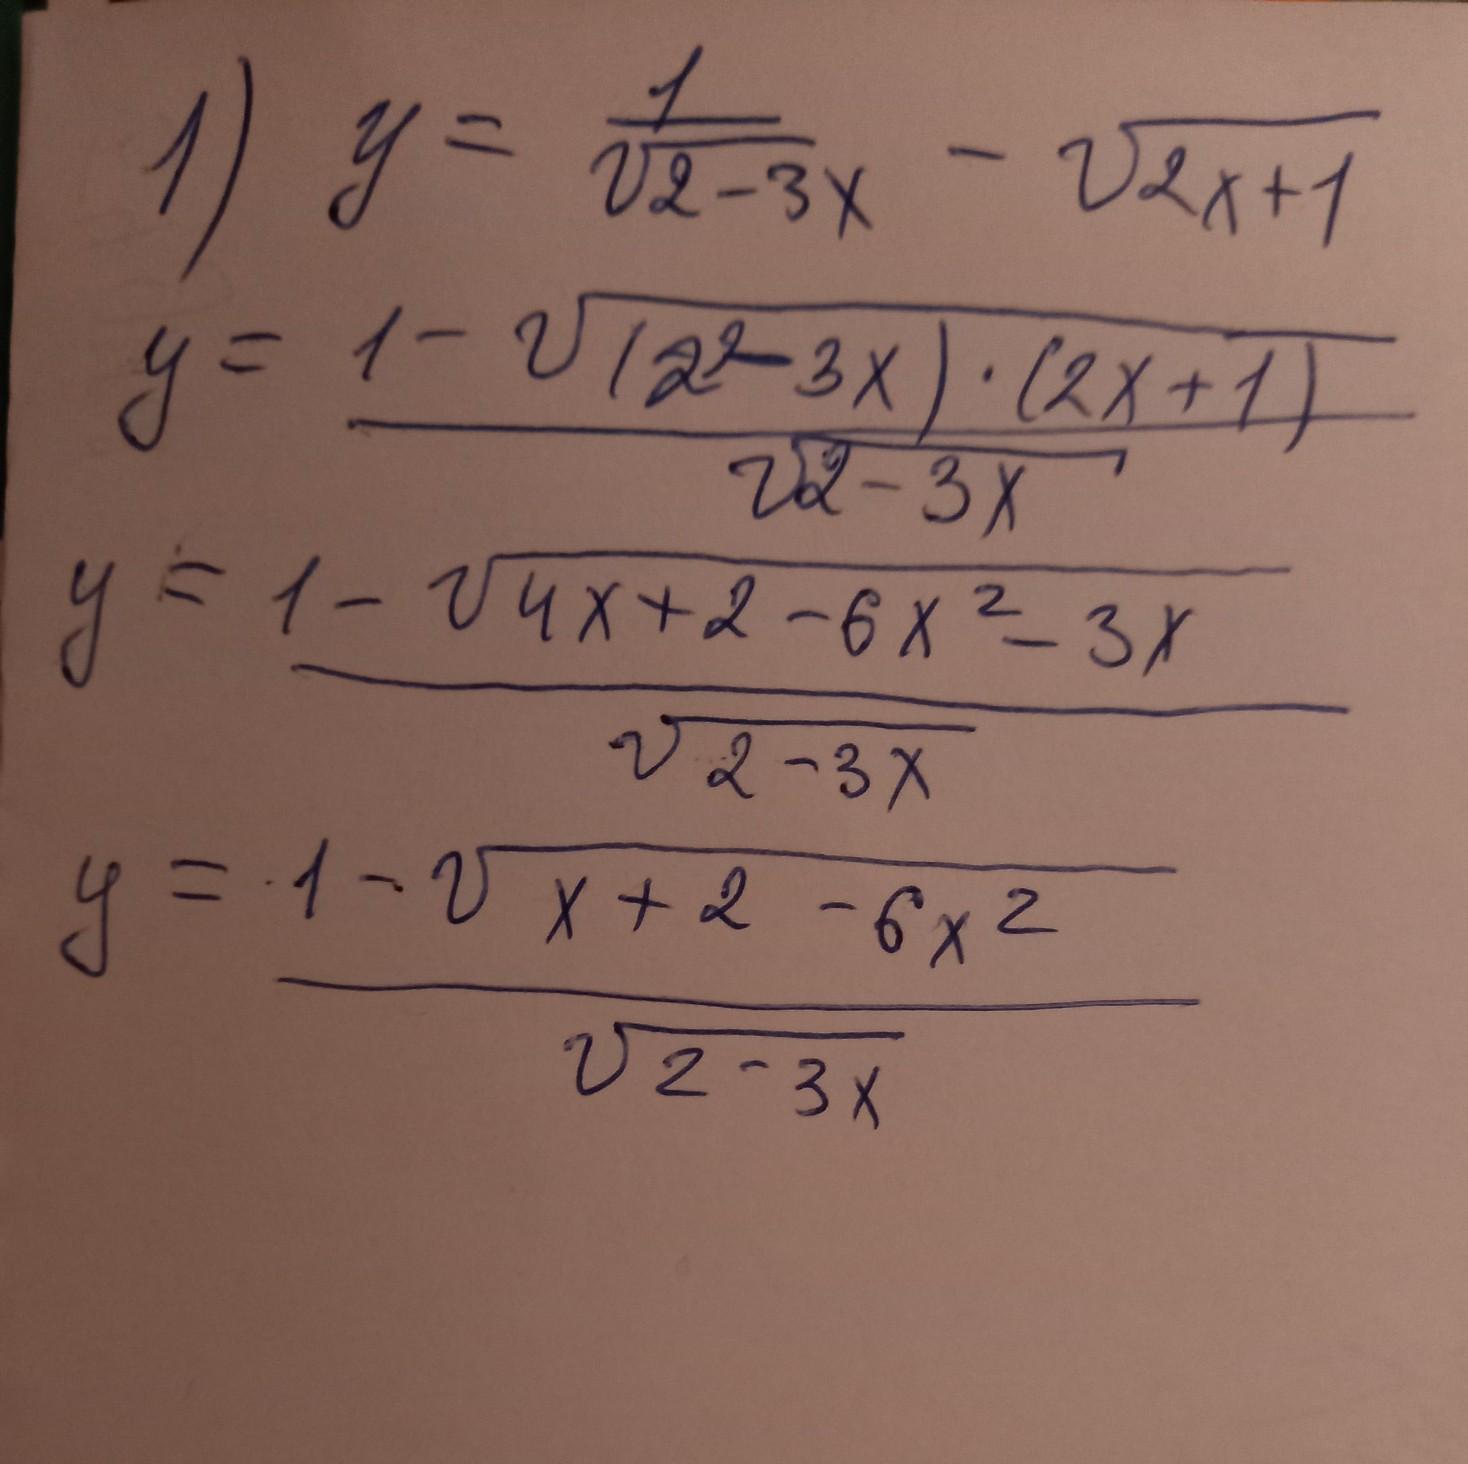 1) y = 1/√(2-3x) - √(2x+1)
y = (1 - √((2-3x)·(2x+1)))/√(2-3x)
y = (1 - √(4x+2-6x²-3x))/√(2-3x)
y = (1 - √(x+2-6x²))/√(2-3x)